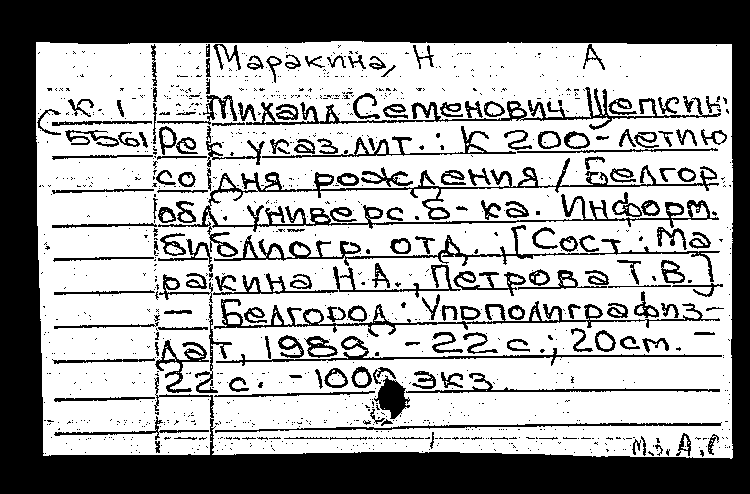 Маракина, Н А
К 1 — Михаил Семенович Щепкин:
5561 Рек. указ. лит.: К 200-летию
со дня рождения / Белгор.
обл. универс. б-ка. Информ.
библиогр. отд.; [Сост.: Ма-
ракина Н.А., Петрова Т.В.]
— Белгород: Упрполиграфиз-
дат, 1989. - 22 с.; 20 cm. —
22 с. - 1000 экз.